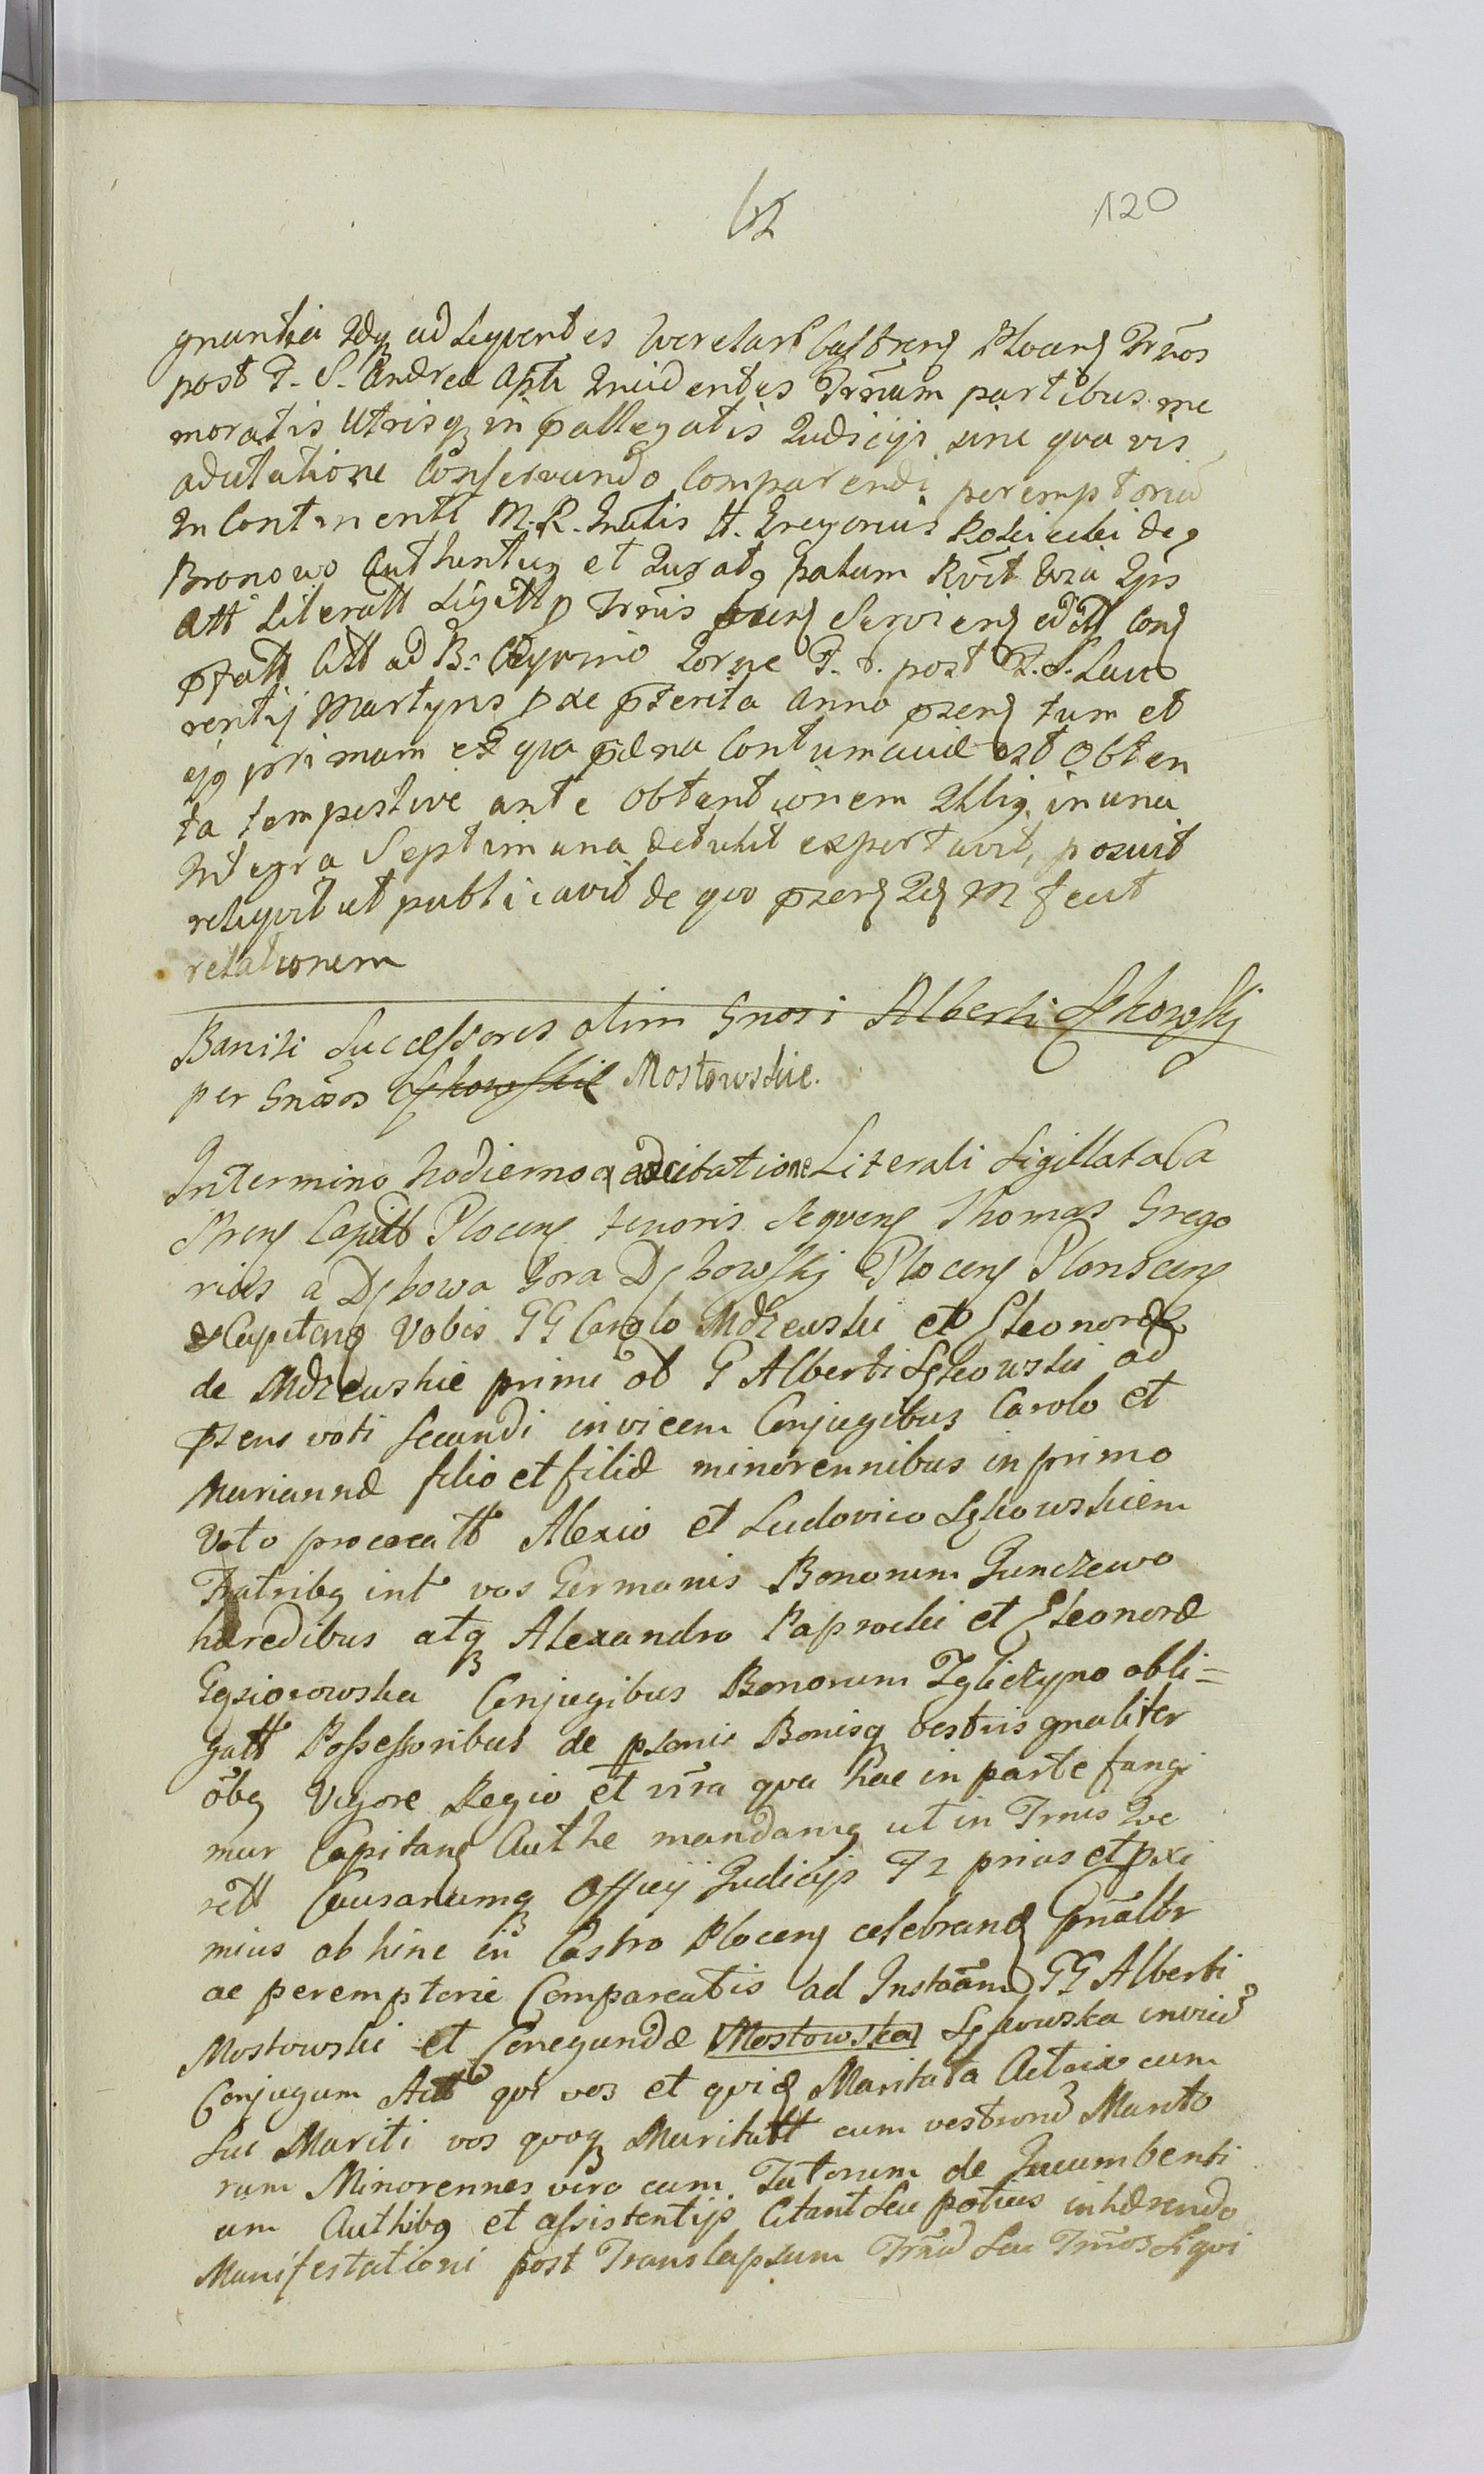 62
120
gnantia Idq ad Sequentes Querelarũ Castreñ Ploceñ Trm̃os
post F. S. Andreæ Aptli Incidentes Trm̃um partibus me
moratis Utrisq in pallegatis Judicijs sine qua vis
adcitatione Conservando Comparendi peremptoriũ
In Continenti M. R. Gnalis H. Gregorius Kosicicki de
Bronowo Authentiq et Jurat palam
Att Literatt Sigittt p Trm̃is Serviens edit Coñ
pfatt Citt ad B. post F. S. Lau
rentij Martyris pxe pterita Anno pzeñ tum et
ejg primam ex qua pæna Contumaciæ est Obten
ta tempestive ante Obtentionem Illig in una
Integra Septimana detulit exportavit, posuit
reliquit et publicavit de quo pzeñ M fecit
relationem
Baniti Successores olim Gnosi Alberti Lękowskj
per Gnõsos Mostowskie.
In termino hodierno ex adcitatione Literali Sigillata Ca
streñ Capitt Ploceñ tenoris Sequeñ Thomas Grego
rius a Dębowa Gora Dębowskj Ploceñ Plonsceñ
Capitaneg Vobis GG Carolo Mdzewski et Eleonoræ
de Mdzewskie primi ol G Alberti Lękowski ad
pzens voti secundi invicem Conjugibus Carolo et
Mariannæ filio et filiæ minorennibus in primo
Voto procreatt Alexio et Ludovico Lękowskiem
Fratribg int vos Germanis Bonorum Junczewo
hæredibus atq Alexandro Paprocki et Eleonoræ
Gąsiorowska Conjugibus Bonorum Zgliczyno obli=
gatt Possessoribus de psonis Bonisq vestris gnaliter
õbg Vigore Regio et nr̃a qua hac in parte fungi
mur Capitaneñ Authe mandamg ut in Trm̃is Que
rell Causarumq Officij Judicijs Fz prius et pxi
mius ab hinc in Castro Ploceñ celebrand Gnãltr
ac peremptorie Compareatis ad Instãam GG Alberti
Mostowski et Conegundæ Mostowska Lękowska invicẽ
Conjugum Actt qui vos et quid Maritata Actrix cum
sui Mariti vos quoq Maritatt cum vestrorũ Marito
rum Minorennes vero cum Tutorum de Incumbenti
um Authibg et assistentijs Citant Seu potius inhærendo
Manifestationi post Translapsum Trm̃ũ seu Trm̃os Liqui